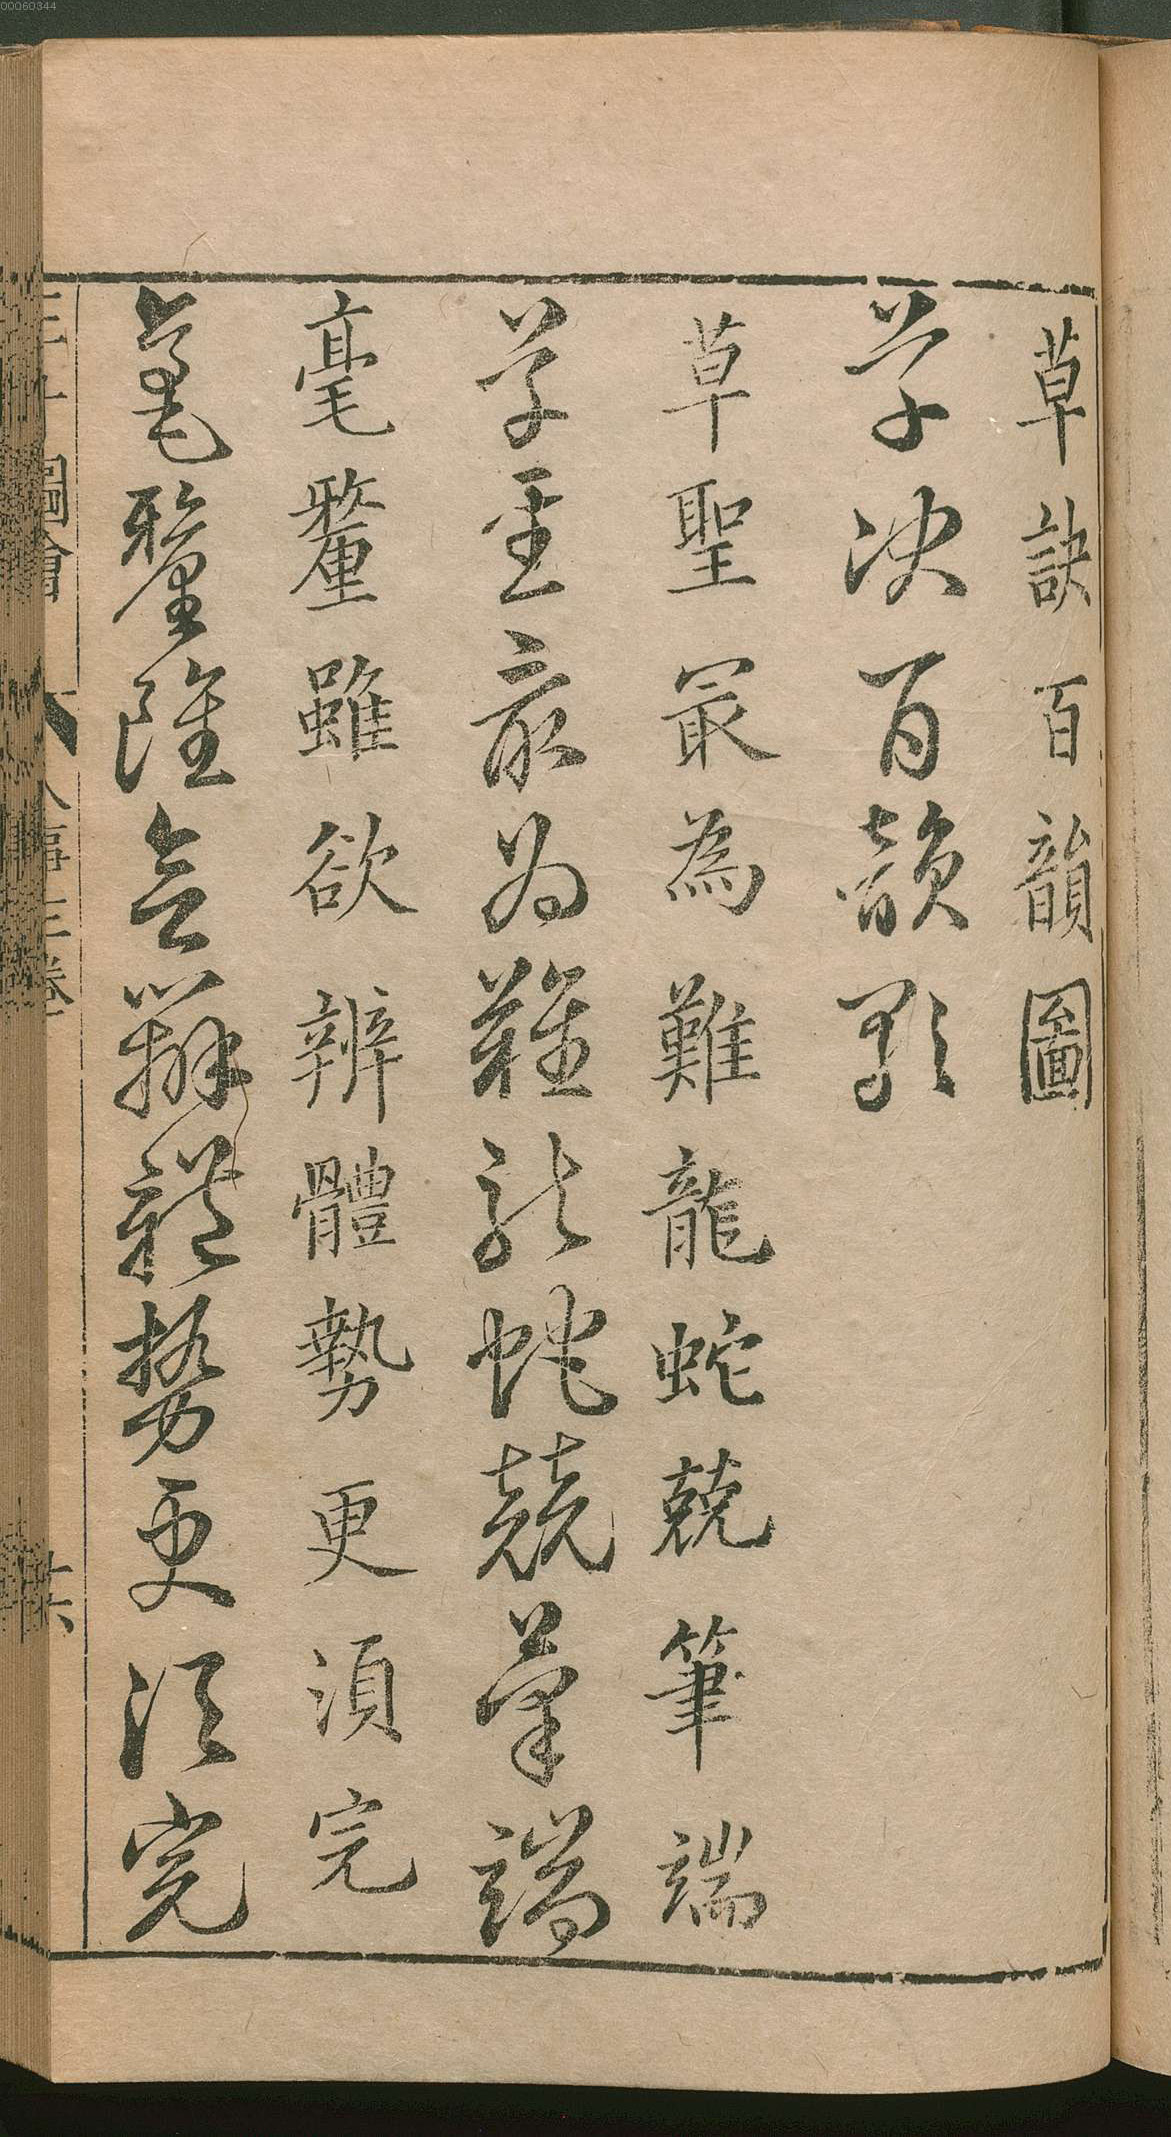 草訣百韻圖
草訣百韻歌
草聖最為難龍蛇兢筆端
草聖最為難龍蛇競筆端
毫釐雖欲辨體勢更須完
毫釐雖欲辨體勢更須完
圖會
人事三卷
廿六
00060344